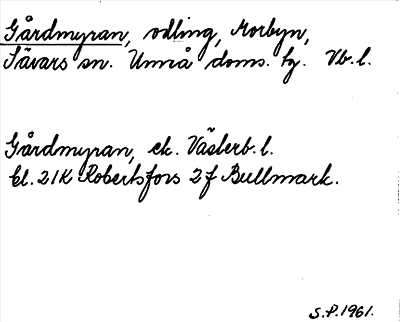 Gårdmyran, odling, Morbyn,
Sävars sn. Umeå doms. tg. Vb. l.
Gårdmyran, ek. Västerb. l.
bl. 21K Robertsfors 2f Bullmark.
S.P. 1961.